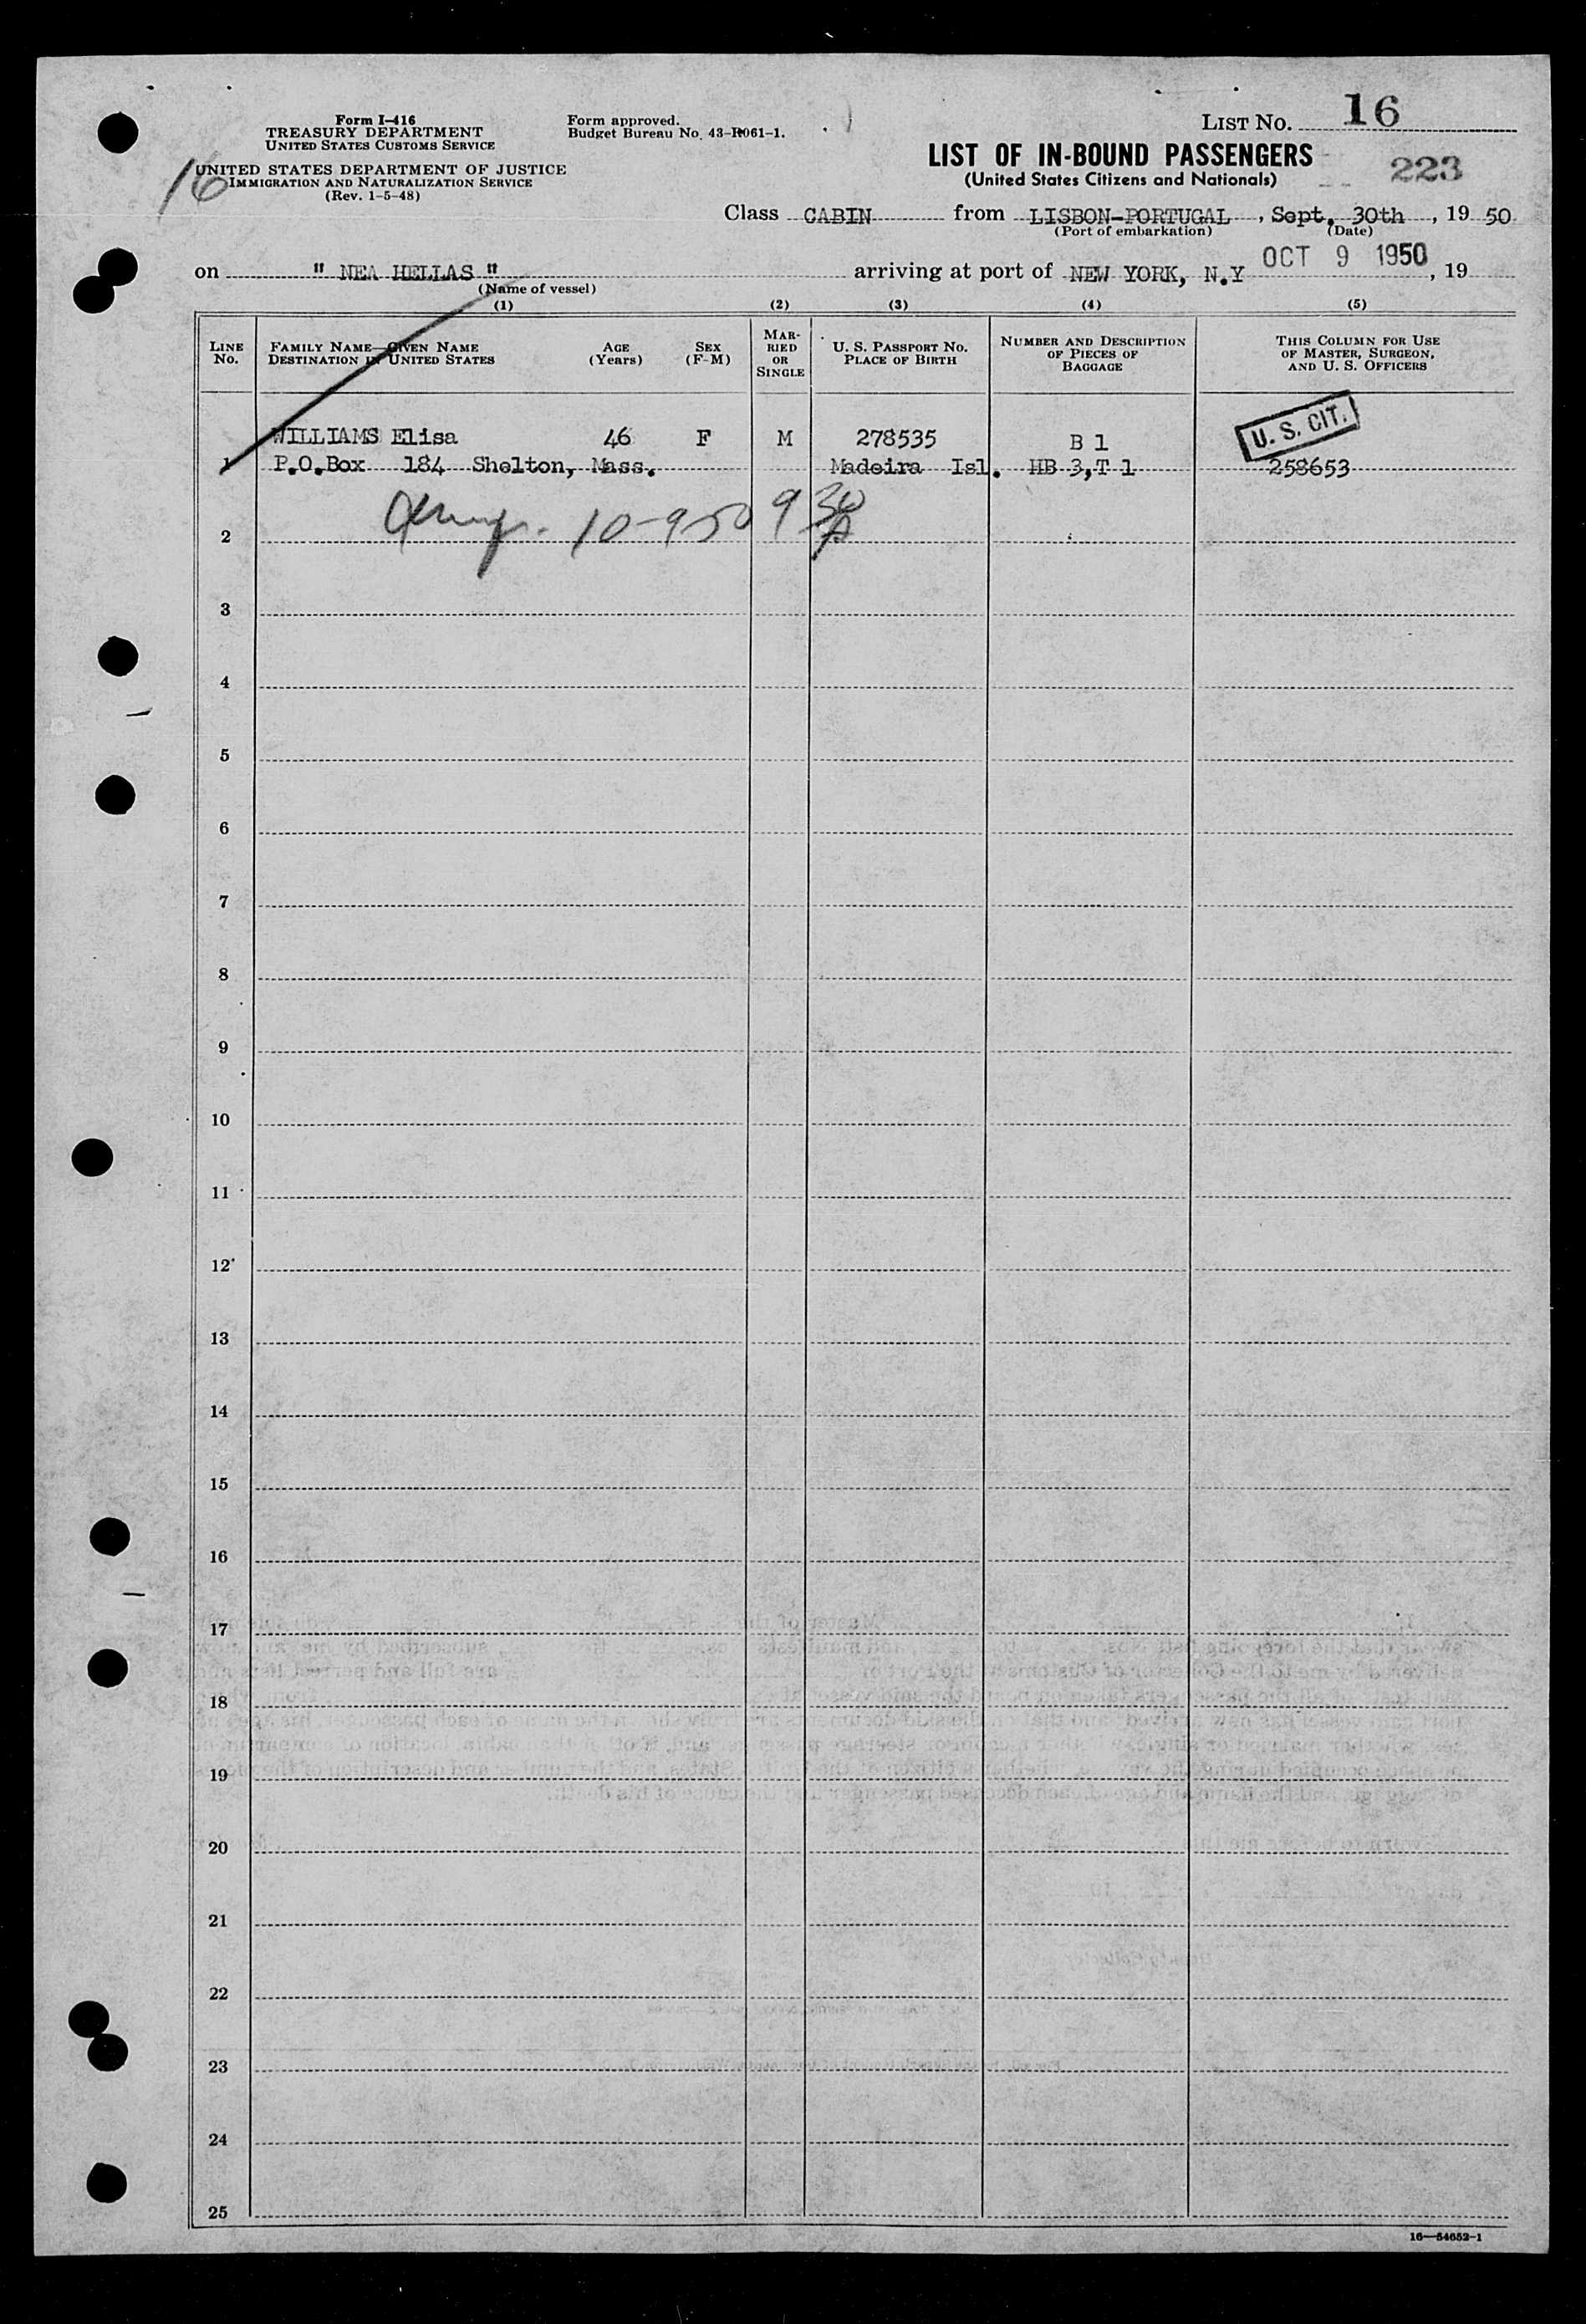 Form I-416
TREASURY DEPARTMENT
UNITED STATES CUSTOMS SERVICE
Form approved.
Budget Bureau No. 43-R061-1.
LIST NO. 16
16
UNITED STATES DEPARTMENT OF JUSTICE
IMMIGRATION AND NATURALIZATION SERVICE
(Rev. 1-5-48)
LIST OF IN-BOUND PASSENGERS
(United States Citizens and Nationals)
223
Class CABIN from LISBON-PORTUGAL, Sept. 30th, 19 50
(Port of embarkation) (Date)
on " NEA HELLAS " arriving at port of NEW YORK, N.Y OCT 9 1950, 19
(Name of vessel)
(1) (2) (3) (4) (5)
LINE No.
FAMILY NAME—GIVEN NAME
DESTINATION IN UNITED STATES
AGE
(Years)
SEX
(F-M)
MARRIED OR SINGLE
U. S. PASSPORT NO.
PLACE OF BIRTH
NUMBER AND DESCRIPTION
OF PIECES OF
BAGGAGE
THIS COLUMN FOR USE
OF MASTER, SURGEON,
AND U. S. OFFICERS
WILLIAMS Elisa 46 F M 278535 B 1 U. S. CIT.
1 P.O.Box 184 Shelton, Mass. Madeira Isl. HB 3,T 1 258653
10-9-50 9 30 A
2
3
4
5
6
7
8
9
10
11
12
13
14
15
16
17
18
19
20
21
22
23
24
25
16—54652-1